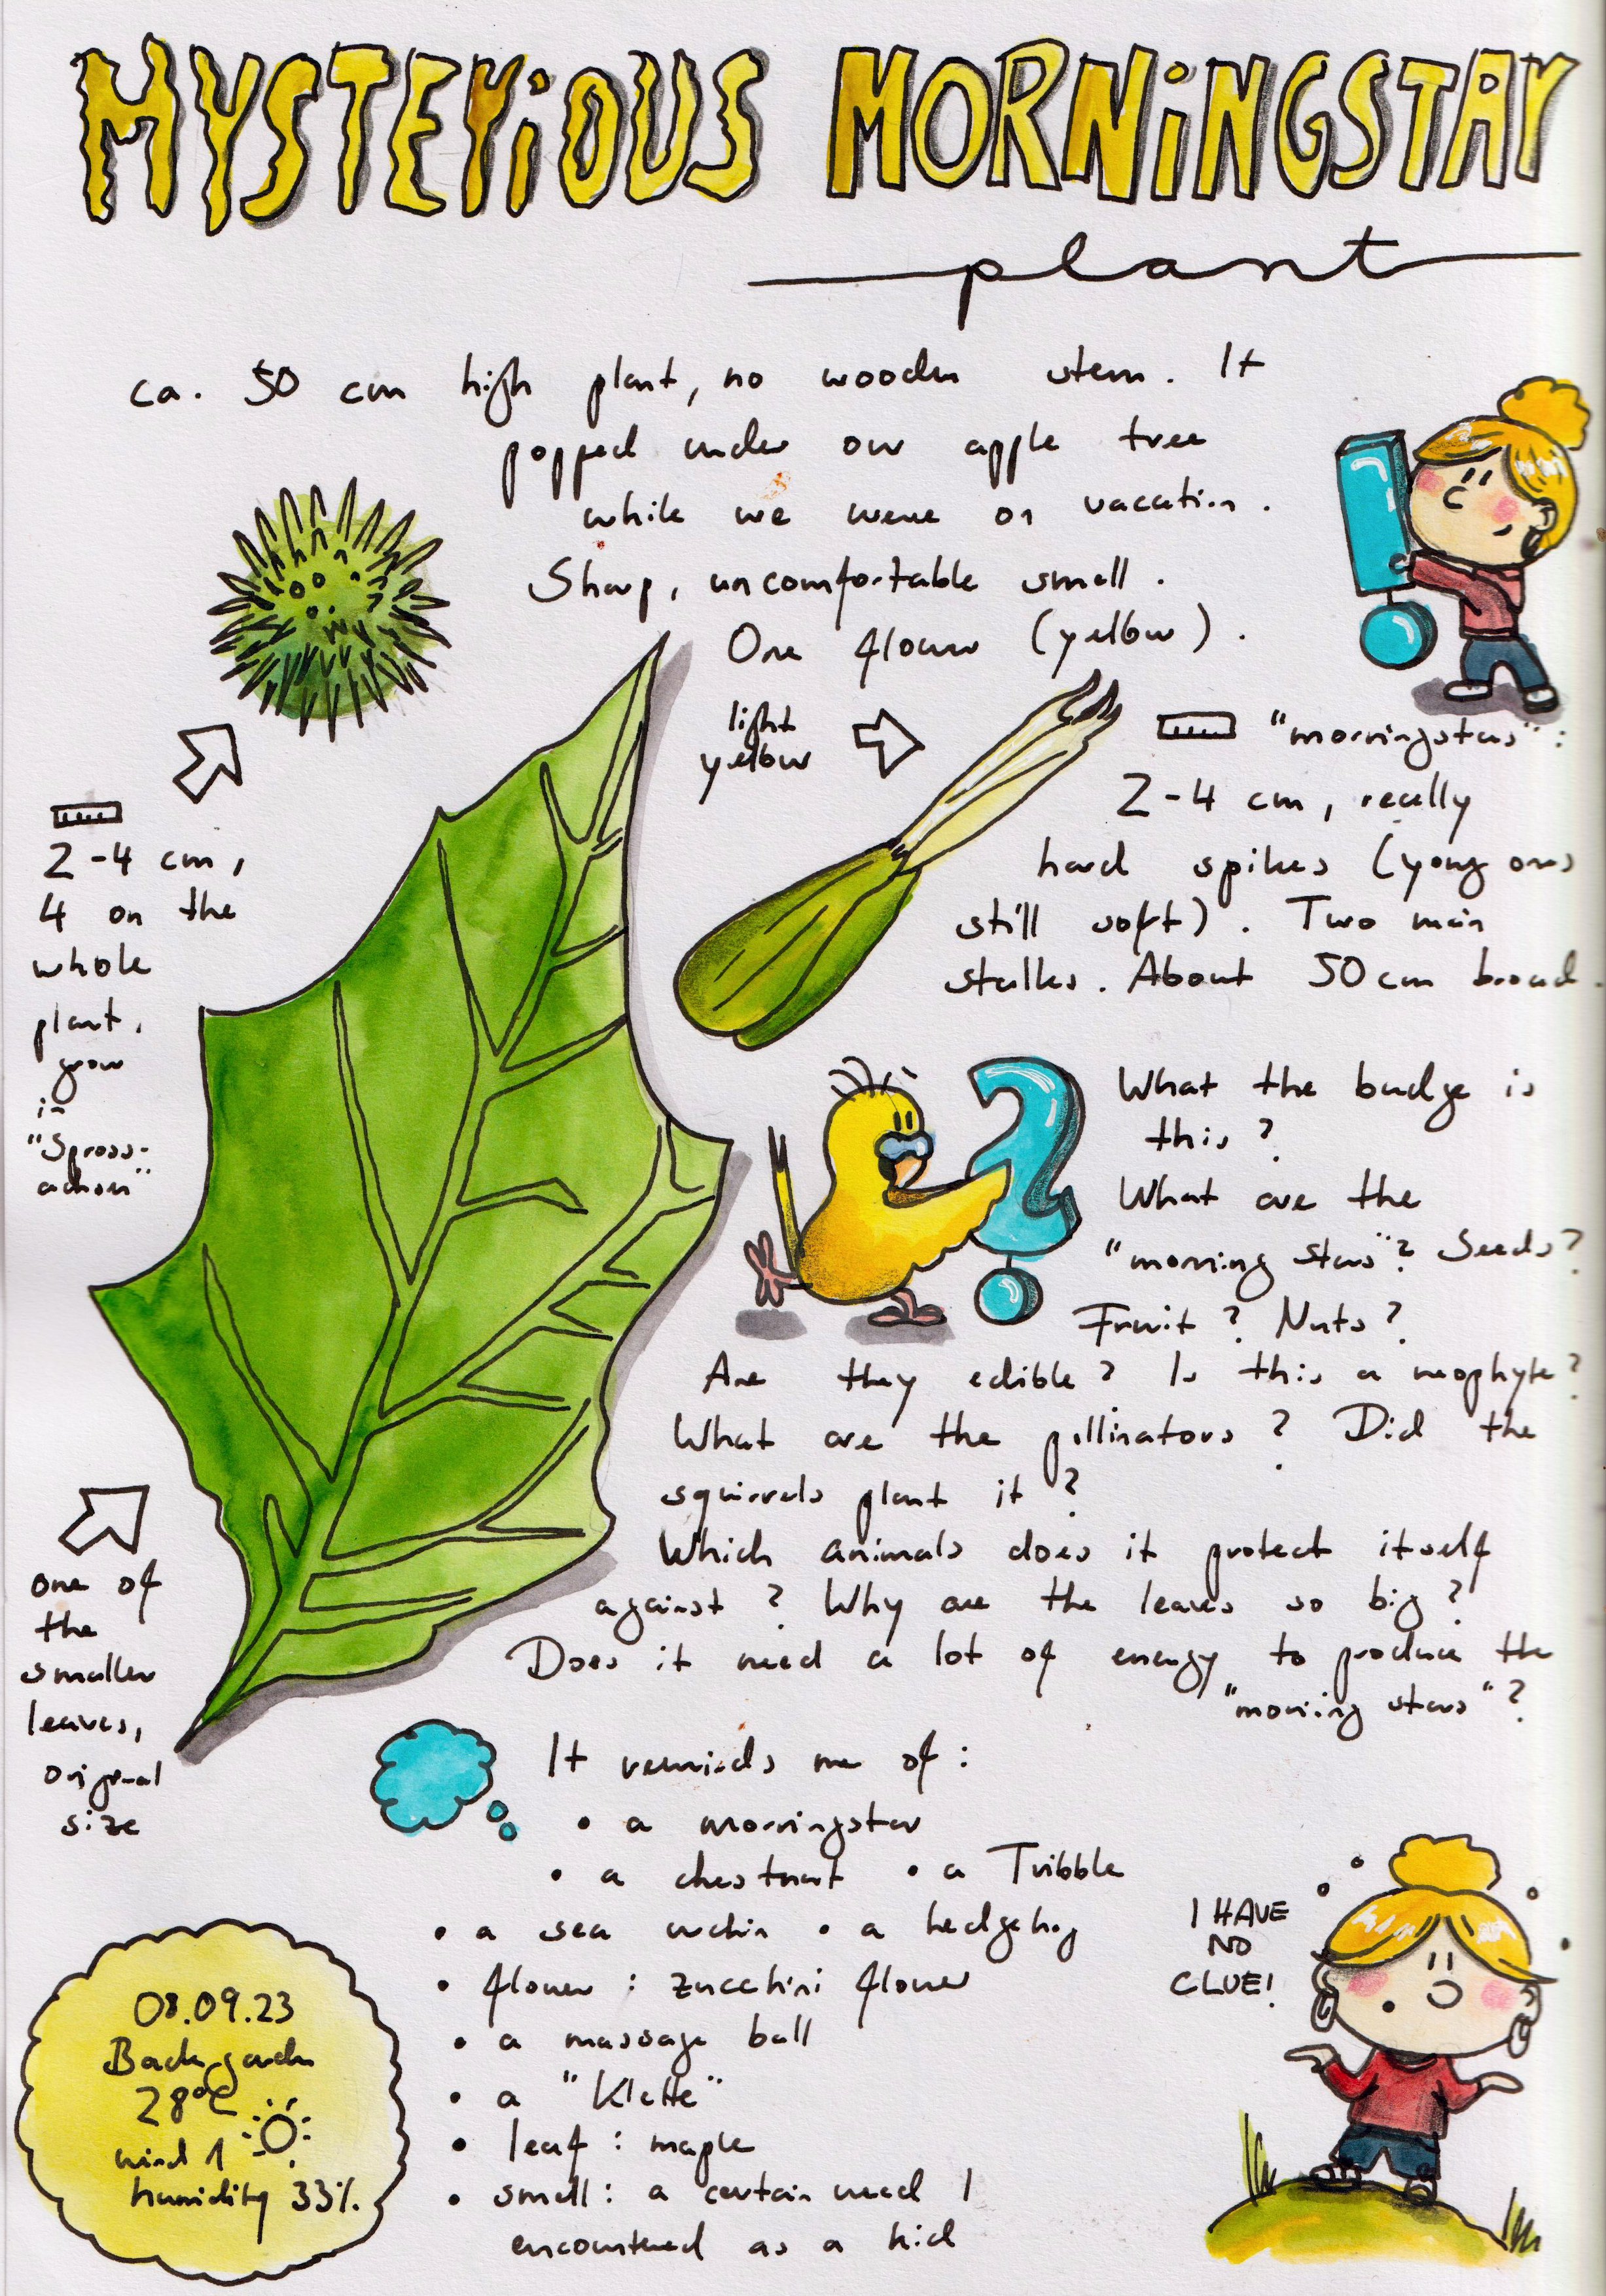 MYSTERIOUS MORNINGSTAR
plant
ca. 50 cm high plant, no wooden stem. It
popped under our apple tree
while we were on vacation.
Sharp, uncomfortable smell.
One flower (yellow).
light
yellow
"morningstars":
2-4 cm, really
hard spikes (yong ones
still soft). Two main
stalks. About 50 cm broad.
2-4 cm,
4 on the
whole
plant,
grow
in
"Spross-
achsen"
What the budge is
this?
What are the
"morning stars"? Seeds?
Fruit? Nuts?
Are they edible? Is this a neophyte?
What are the pollinators? Did the
squirrels plant it?
Which animals does it protect itself
against? Why are the leaves so big?
Does it need a lot of energy to produce the
"morning stars"?
one of
the
smaller
leaves,
original
size
It reminds me of:
• a morningstar
• a chestnut • a Tribble
• a sea urchin • a hedgehog
• flower: zucchini flower
• a massage ball
• a "Klette"
• leaf: maple
• smell: a certain weed I
encountered as a kid
08.09.23
Back garden
28°C
wind 1
humidity 33%
I HAVE
NO
CLUE!